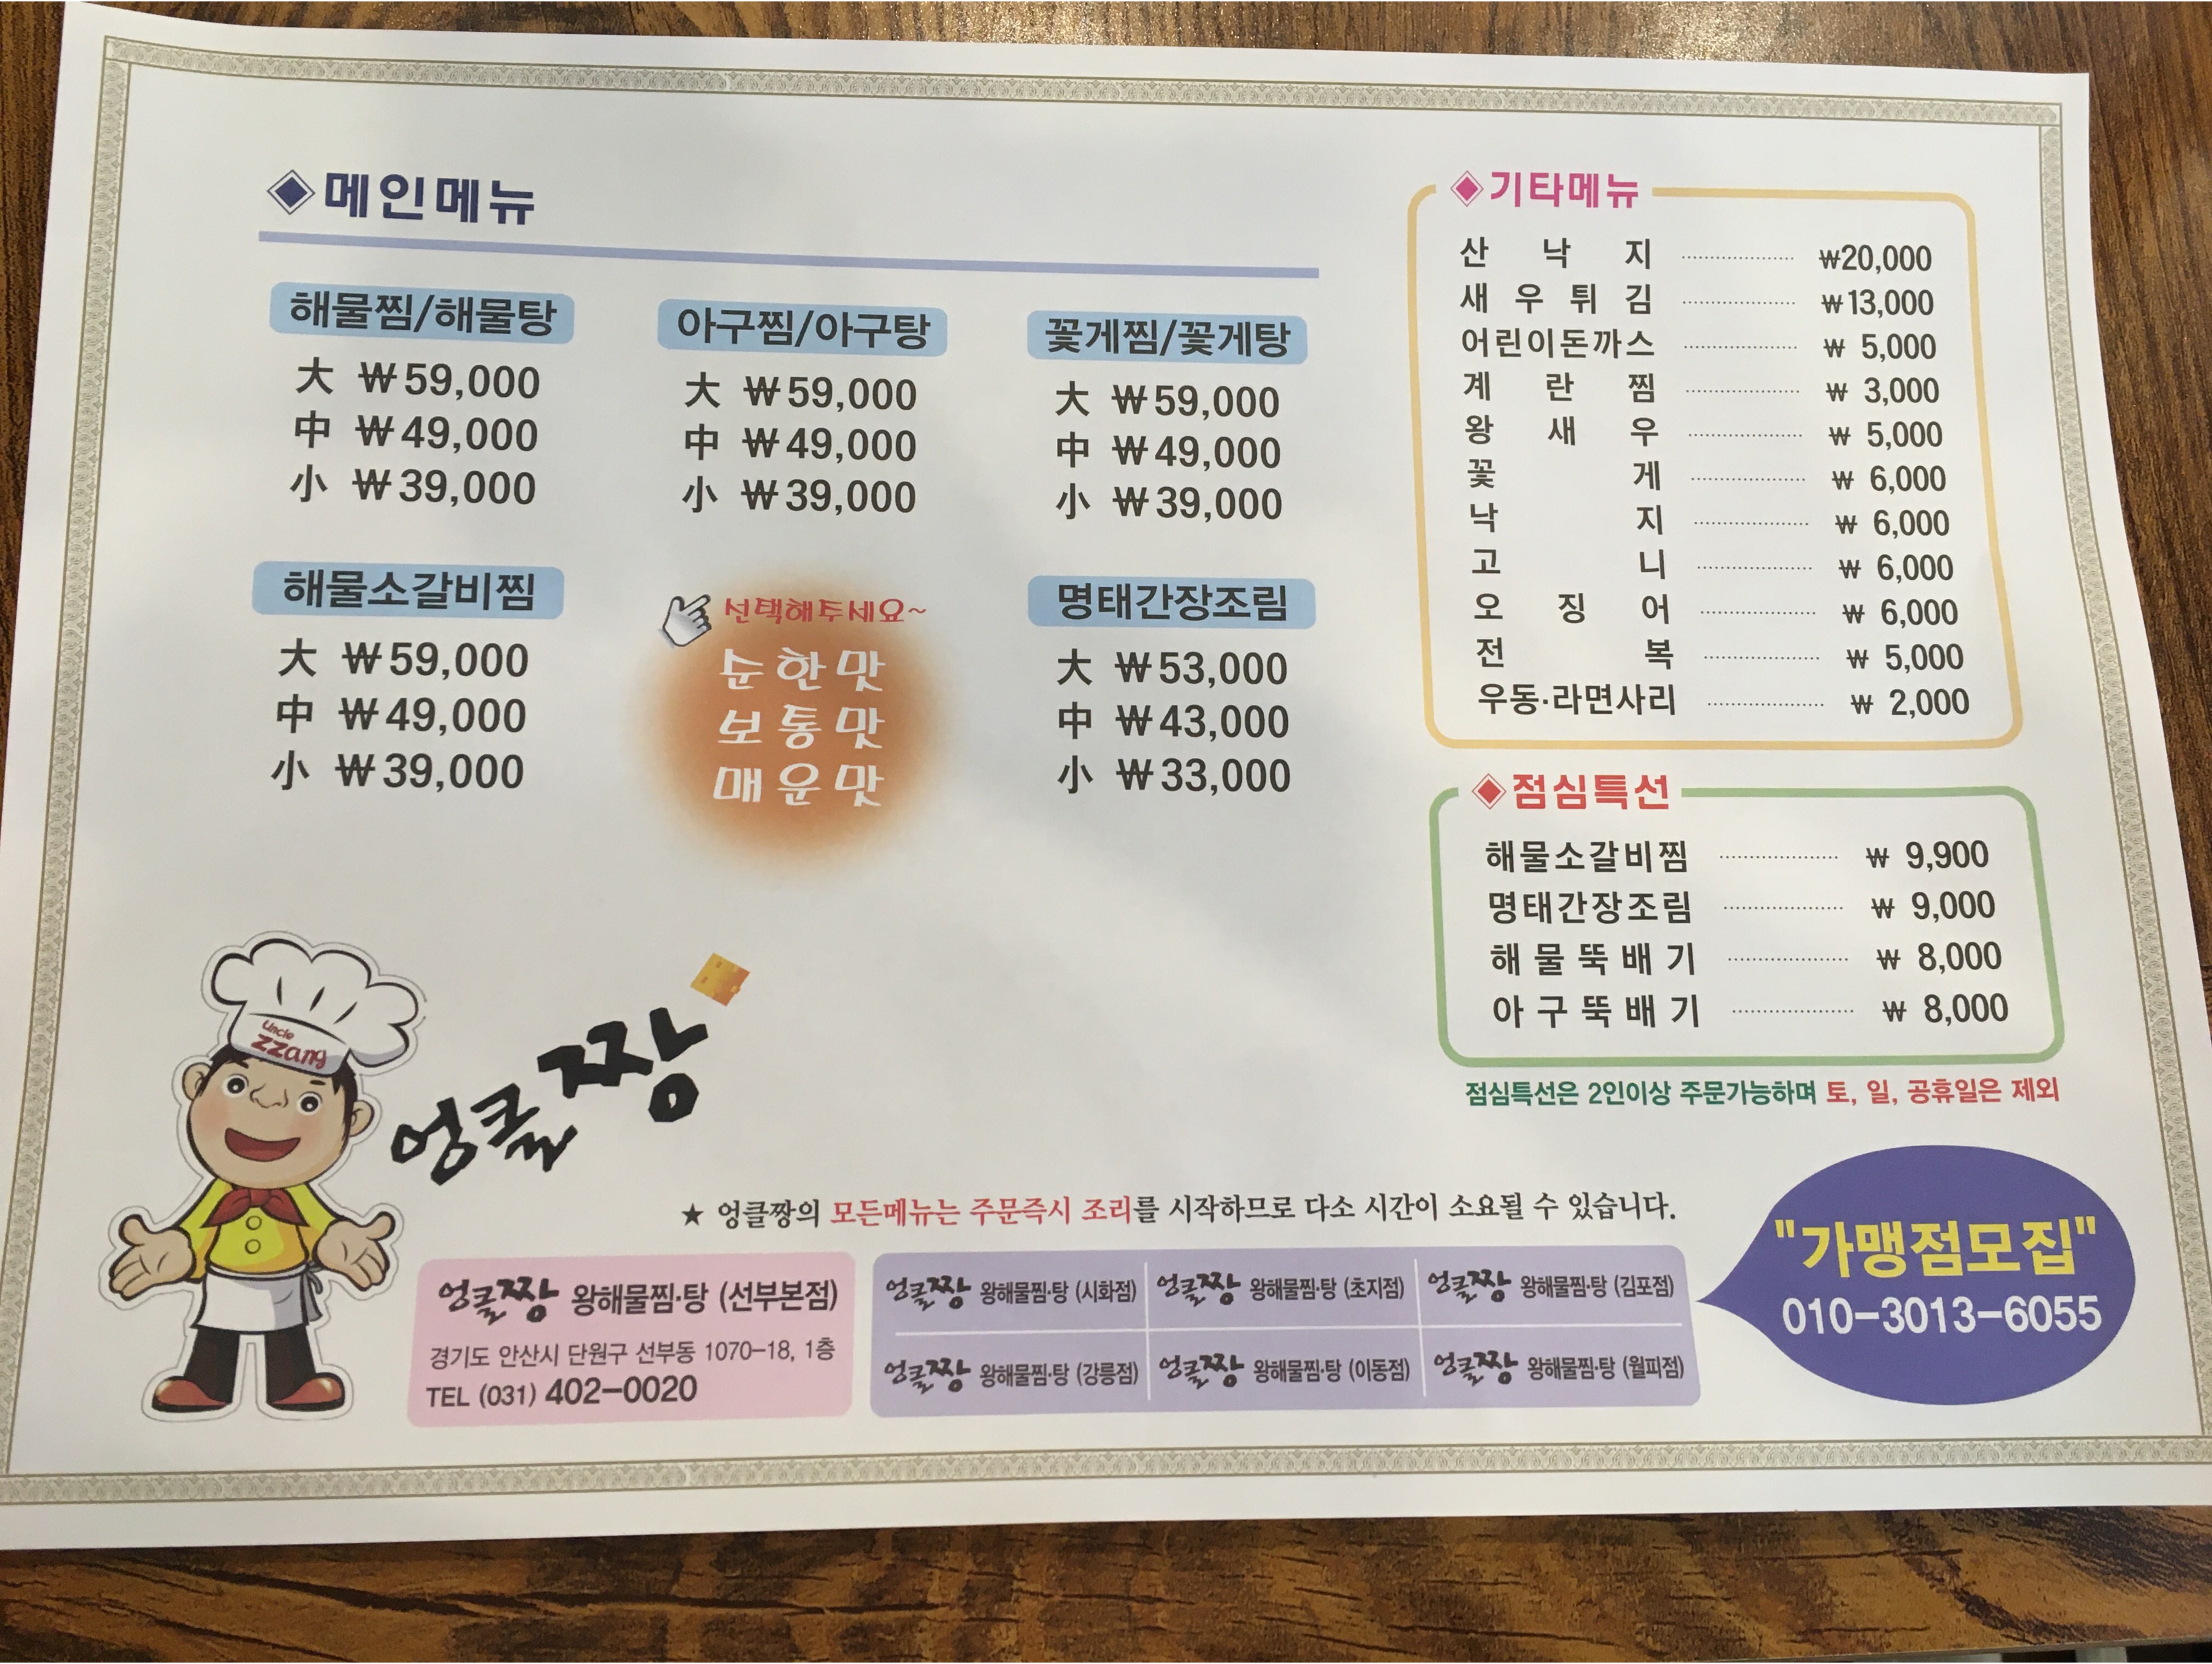 ◈메인메뉴
해물찜/해물탕
大 ₩59,000
中 ₩49,000
小 ₩39,000
아구찜/아구탕
大 ₩59,000
中 ₩49,000
小 ₩39,000
꽃게찜/꽃게탕
大 ₩59,000
中 ₩49,000
小 ₩39,000
해물소갈비찜
大 ₩59,000
中 ₩49,000
小 ₩39,000
선택해주세요~
순한맛
보통맛
매운맛
명태간장조림
大 ₩53,000
中 ₩43,000
小 ₩33,000
◈기타메뉴
산낙지 ₩20,000
새우튀김 ₩13,000
어린이돈까스 ₩ 5,000
계란찜 ₩ 3,000
왕새우 ₩ 5,000
꽃게 ₩ 6,000
낙지 ₩ 6,000
고니 ₩ 6,000
오징어 ₩ 6,000
전복 ₩ 5,000
우동·라면사리 ₩ 2,000
◈점심특선
해물소갈비찜 ₩ 9,900
명태간장조림 ₩ 9,000
해물뚝배기 ₩ 8,000
아구뚝배기 ₩ 8,000
점심특선은 2인이상 주문가능하며 토, 일, 공휴일은 제외
Uncle
zzang
엉클짱
★ 엉클짱의 모든메뉴는 주문즉시 조리를 시작하므로 다소 시간이 소요될 수 있습니다.
엉클짱 왕해물찜·탕 (선부본점)
경기도 안산시 단원구 선부동 1070-18, 1층
TEL (031) 402-0020
엉클짱 왕해물찜·탕 (시화점)
엉클짱 왕해물찜·탕 (초지점)
엉클짱 왕해물찜·탕 (김포점)
엉클짱 왕해물찜·탕 (강릉점)
엉클짱 왕해물찜·탕 (이동점)
엉클짱 왕해물찜·탕 (월피점)
"가맹점모집"
010-3013-6055